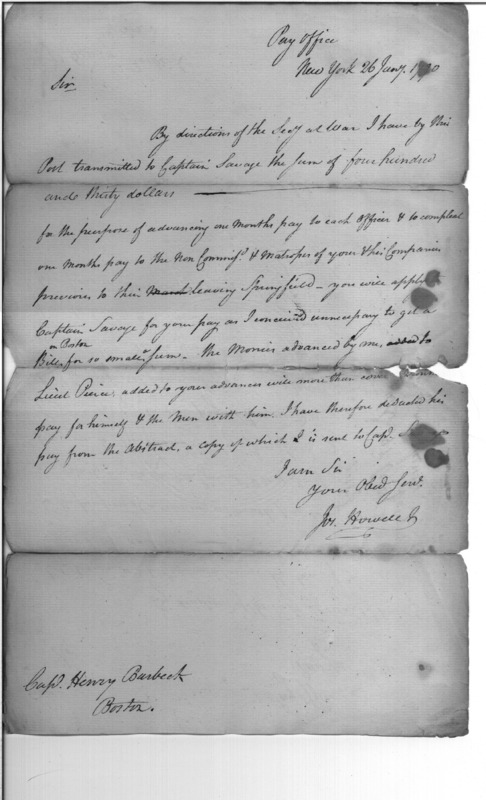 Pay Office
New York 26 Jany. 1790
Sir
By directions of the Secy at War I have by this
Post transmitted to Captain Savage the sum of four hundred
and thirty dollars
for the purpose of advancing one months pay to each Officer & to compleat
one months pay to the Non Commisd. & Matrosses of your & his Companies
previous to their March leaving Springfield - you will apply
Captain Savage for your pay as I conceived unnecessary to get a
on Boston
Bill for so small Sum - the Monies advanced by me, added to
Lieut Peirce, added to your advances will more than
pay for himself & the Men with him. I have therefore deducted his
pay from the Abstract, a copy of which is sent to Capt.
I am Sir
Your Obed Servt.
Jos. Howell Jr
Capt. Henry Burbeck
Boston.